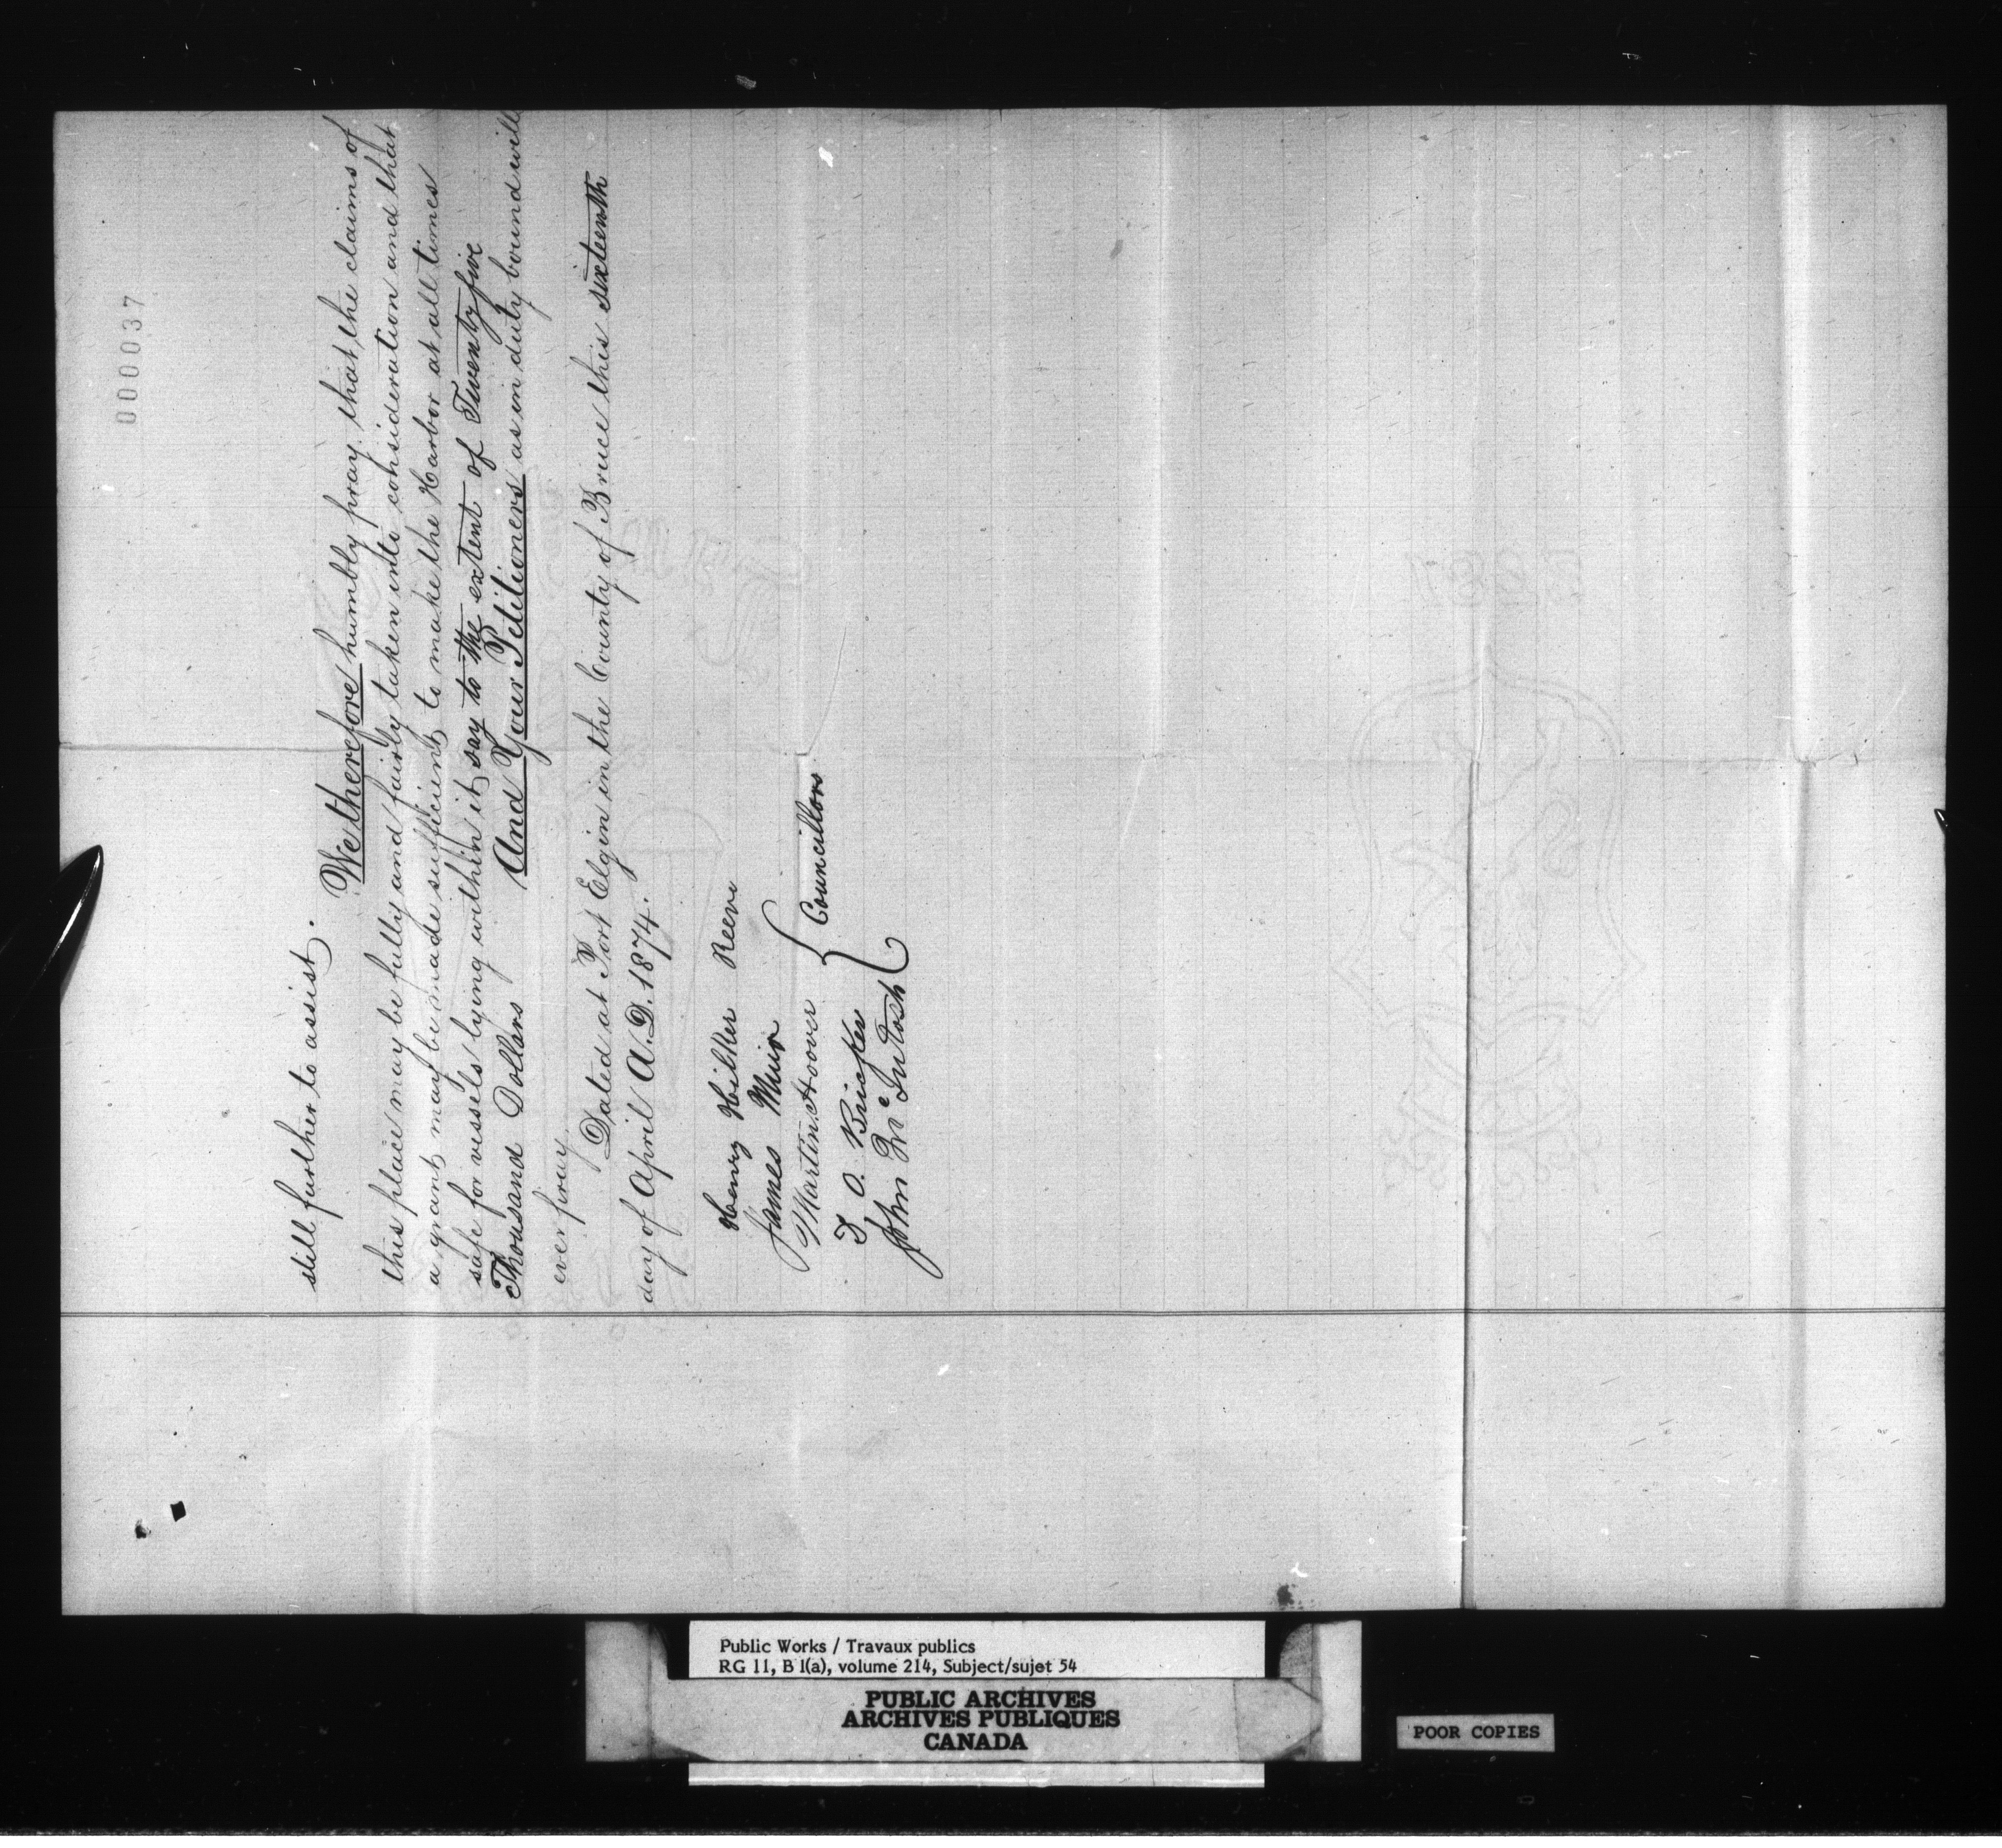 000037
still further to assist.
We therefore humbly pray that the claims of
this place may be fully and fairly taken into consideration and that
a grant may be made sufficient to make the Harbor at all times
safe for vessels lying within it say to the extent of Twenty five
Thousand Dollars And Your Petitioners as in duty bound will
ever pray.
Dated at Port Elgin in the County of Bruce this sixteenth
day of April A.D. 1874.
Henry Hilker Reeve
James Muir
Martin Hoover
D. O. Bricker
John McIntosh
Councillors
Public Works / Travaux publics
RG 11, B 1(a), volume 214, Subject/sujet 54
PUBLIC ARCHIVES
ARCHIVES PUBLIQUES
CANADA
POOR COPIES